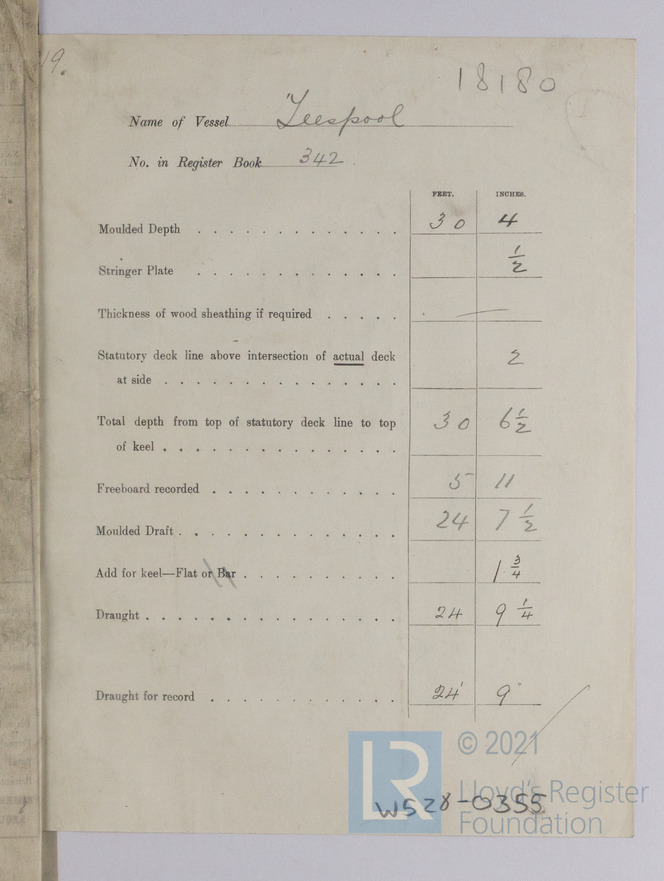 19.
18180
Name of Vessel Teespool
No. in Register Book 342
FEET. INCHES.
Moulded Depth . . . . . . . . . . . . . 30 4
Stringer Plate . . . . . . . . . . . . . ½
Thickness of wood sheathing if required . . . . . —
Statutory deck line above intersection of actual deck
at side . . . . . . . . . . . . . . 2
Total depth from top of statutory deck line to top 30 6½
of keel . . . . . . . . . . . . . .
Freeboard recorded . . . . . . . . . . . . 5 11
Moulded Draft . . . . . . . . . . . . . 24 7½
Add for keel—Flat or Bar . . . . . . . . . . 1¾
Draught . . . . . . . . . . . . . . . . 24 9¼
Draught for record . . . . . . . . . . . . 24 9
LR
© 2021
Lloyd's Register
Foundation
W528-0355